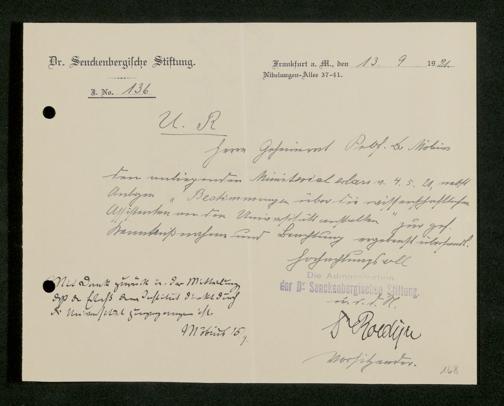 Dr. Senckenbergische Stiftung.
Frankfurt a. M., den 13. 9 1921.
Nibelungen-Allee 37-41.
J. No. 136
U. R
Herrn Geheimrat Prof. Dr. Möbius
den anliegenden Ministerialerlass v. 4. 5. 20, nebst
Anlagen „Bestimmungen über die wissenschaftlichen
Assistenten an den Universitätsanstalten" zur gef.
Kenntnisnahme und Beachtung ergebenst übersandt.
Hochachtungsvoll
Die Administration
der Dr. Senckenbergischen Stiftung.
Dr Roediger
Vorsitzender.
Mit Dank zurück m. der Mitteilung
daß der Erlaß dem Institut direkt durch
die Universität zugegangen ist.
Möbius
168